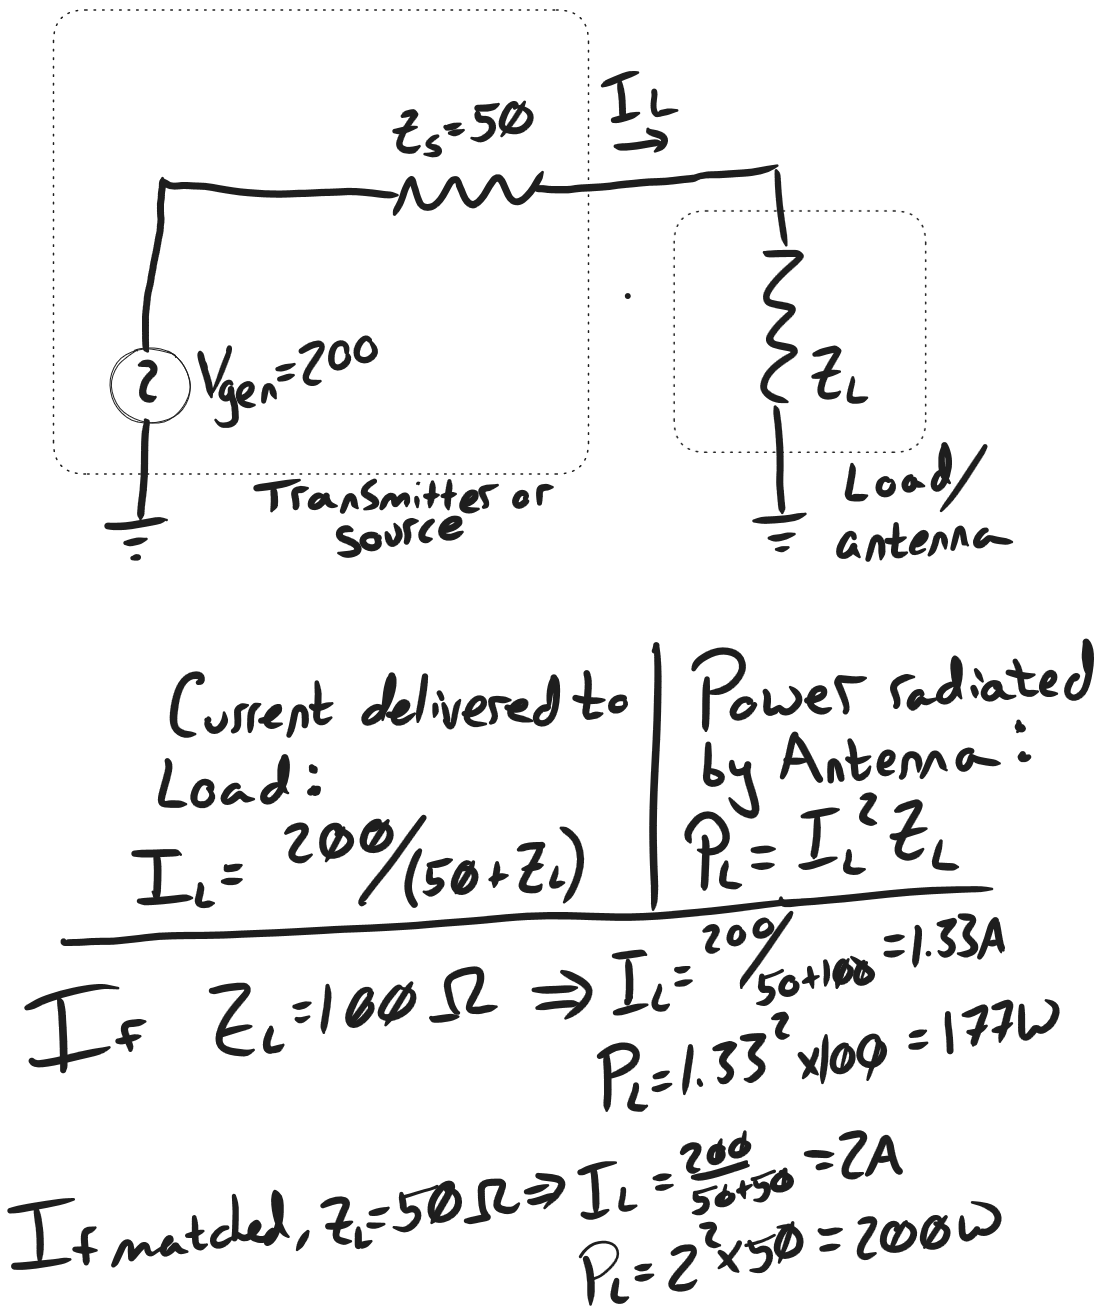 Z_s=50
I_L
→
V_gen=200
Z_L
Transmitter or
source
Load/
antenna
Current delivered to
Load:
I_L= 200/(50+Z_L)
Power radiated
by Antenna:
P_L= I_L² Z_L
If Z_L=100Ω ⇒ I_L= 200/50+100 =1.33A
P_L=1.33²x100 = 177W
If matched, Z_L=50Ω⇒ I_L = 200/50+50 =2A
P_L=2²x50=200W